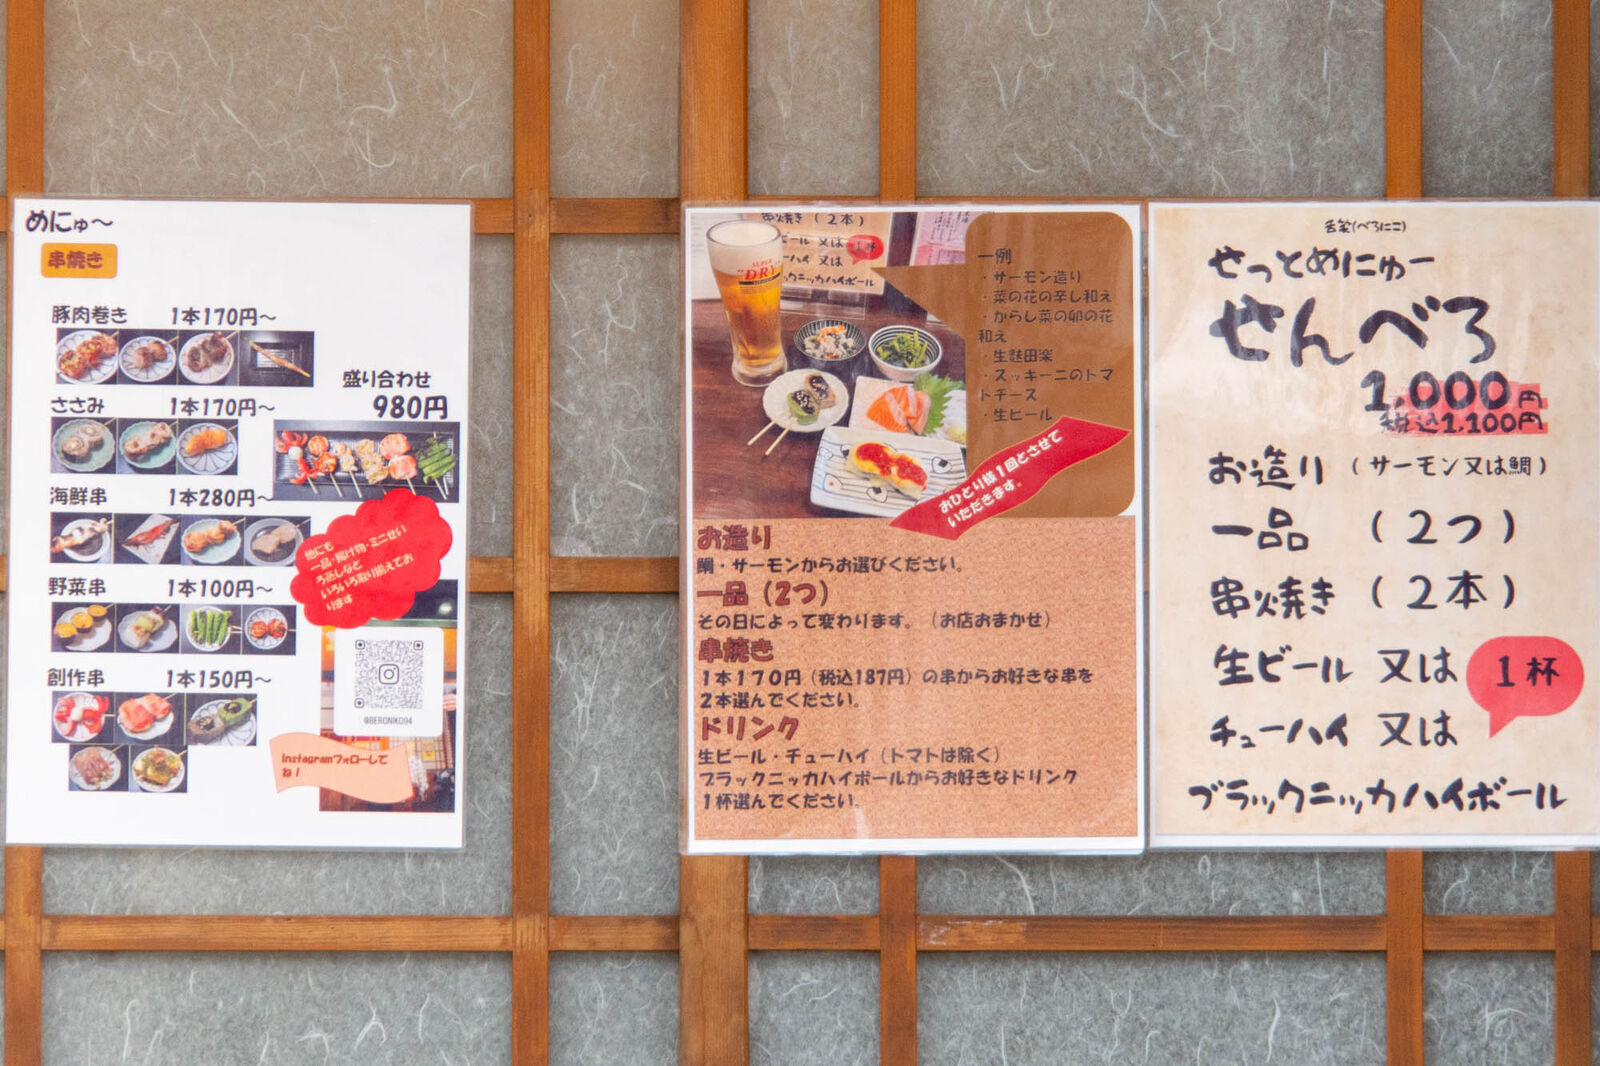 めにゅ～
串焼き
豚肉巻き 1本170円～
ささみ 1本170円～
海鮮串 1本280円～
野菜串 1本100円～
創作串 1本150円～
盛り合わせ
980円
他にも
一品・揚げ物・ミニせい
ろ蒸しなど
いろいろ取り揃えてお
ります
@BERONIKO94
Instagramフォローして
ね！
串焼き（2本）
ビール 又は 1杯
ーハイ 又は
ックニッカハイボール
SUPER
"DRY"
一例
・サーモン造り
・菜の花の辛し和え
・からし菜の卵の花
和え
・生麩田楽
・ズッキーニのトマ
トチーズ
・生ビール
おひとり様1回とさせて
いただきます。
お造り
鯛・サーモンからお選びください。
一品（2つ）
その日によって変わります。（お店おまかせ）
串焼き
1本170円（税込187円）の串からお好きな串を
2本選んでください。
ドリンク
生ビール・チューハイ（トマトは除く）
ブラックニッカハイボールからお好きなドリンク
1杯選んでください。
舌笑(べろにこ)
せっとめにゅー
せんべろ
1,000円
税込1,100円
お造り（サーモン又は鯛）
一品 （2つ）
串焼き （2本）
生ビール 又は
1杯
チューハイ 又は
ブラックニッカハイボール